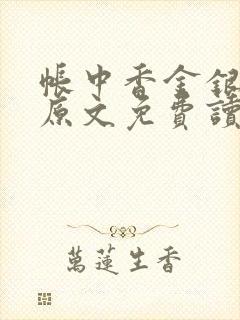 帳中香金銀
原文免費讀
萬蓮生香